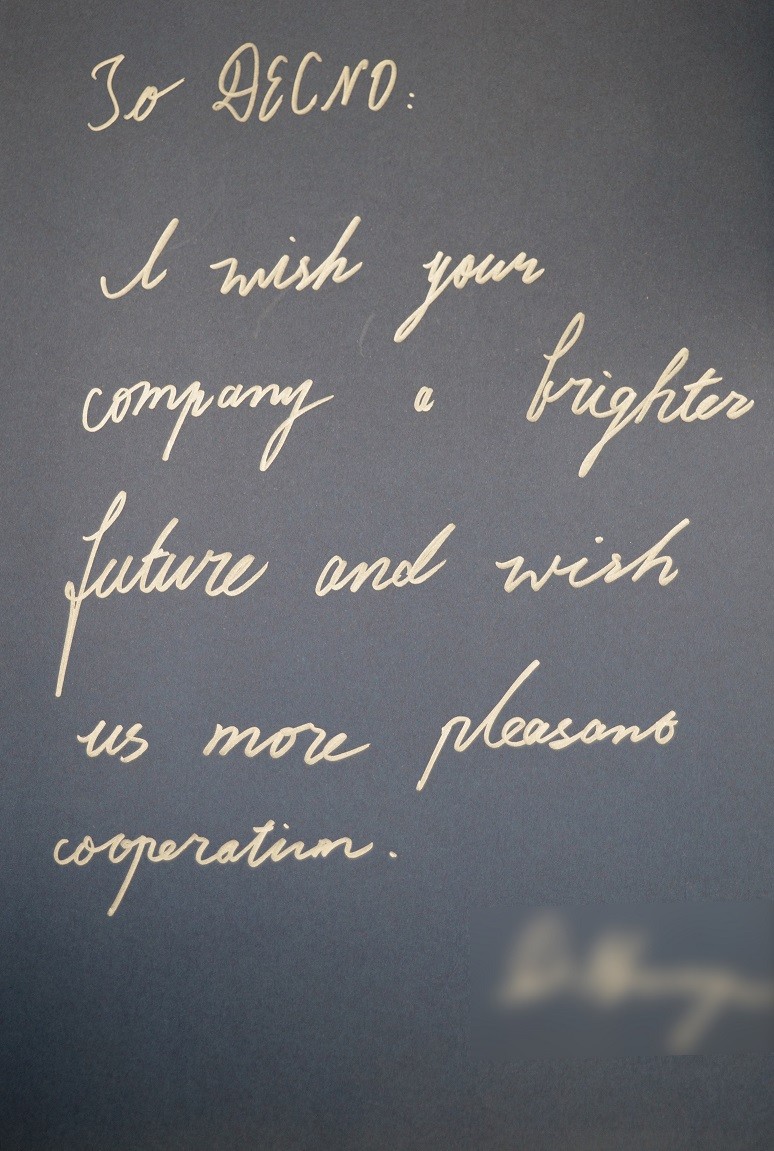 To DECNO:
I wish your
company a brighter
future and wish
us more pleasant
cooperation.